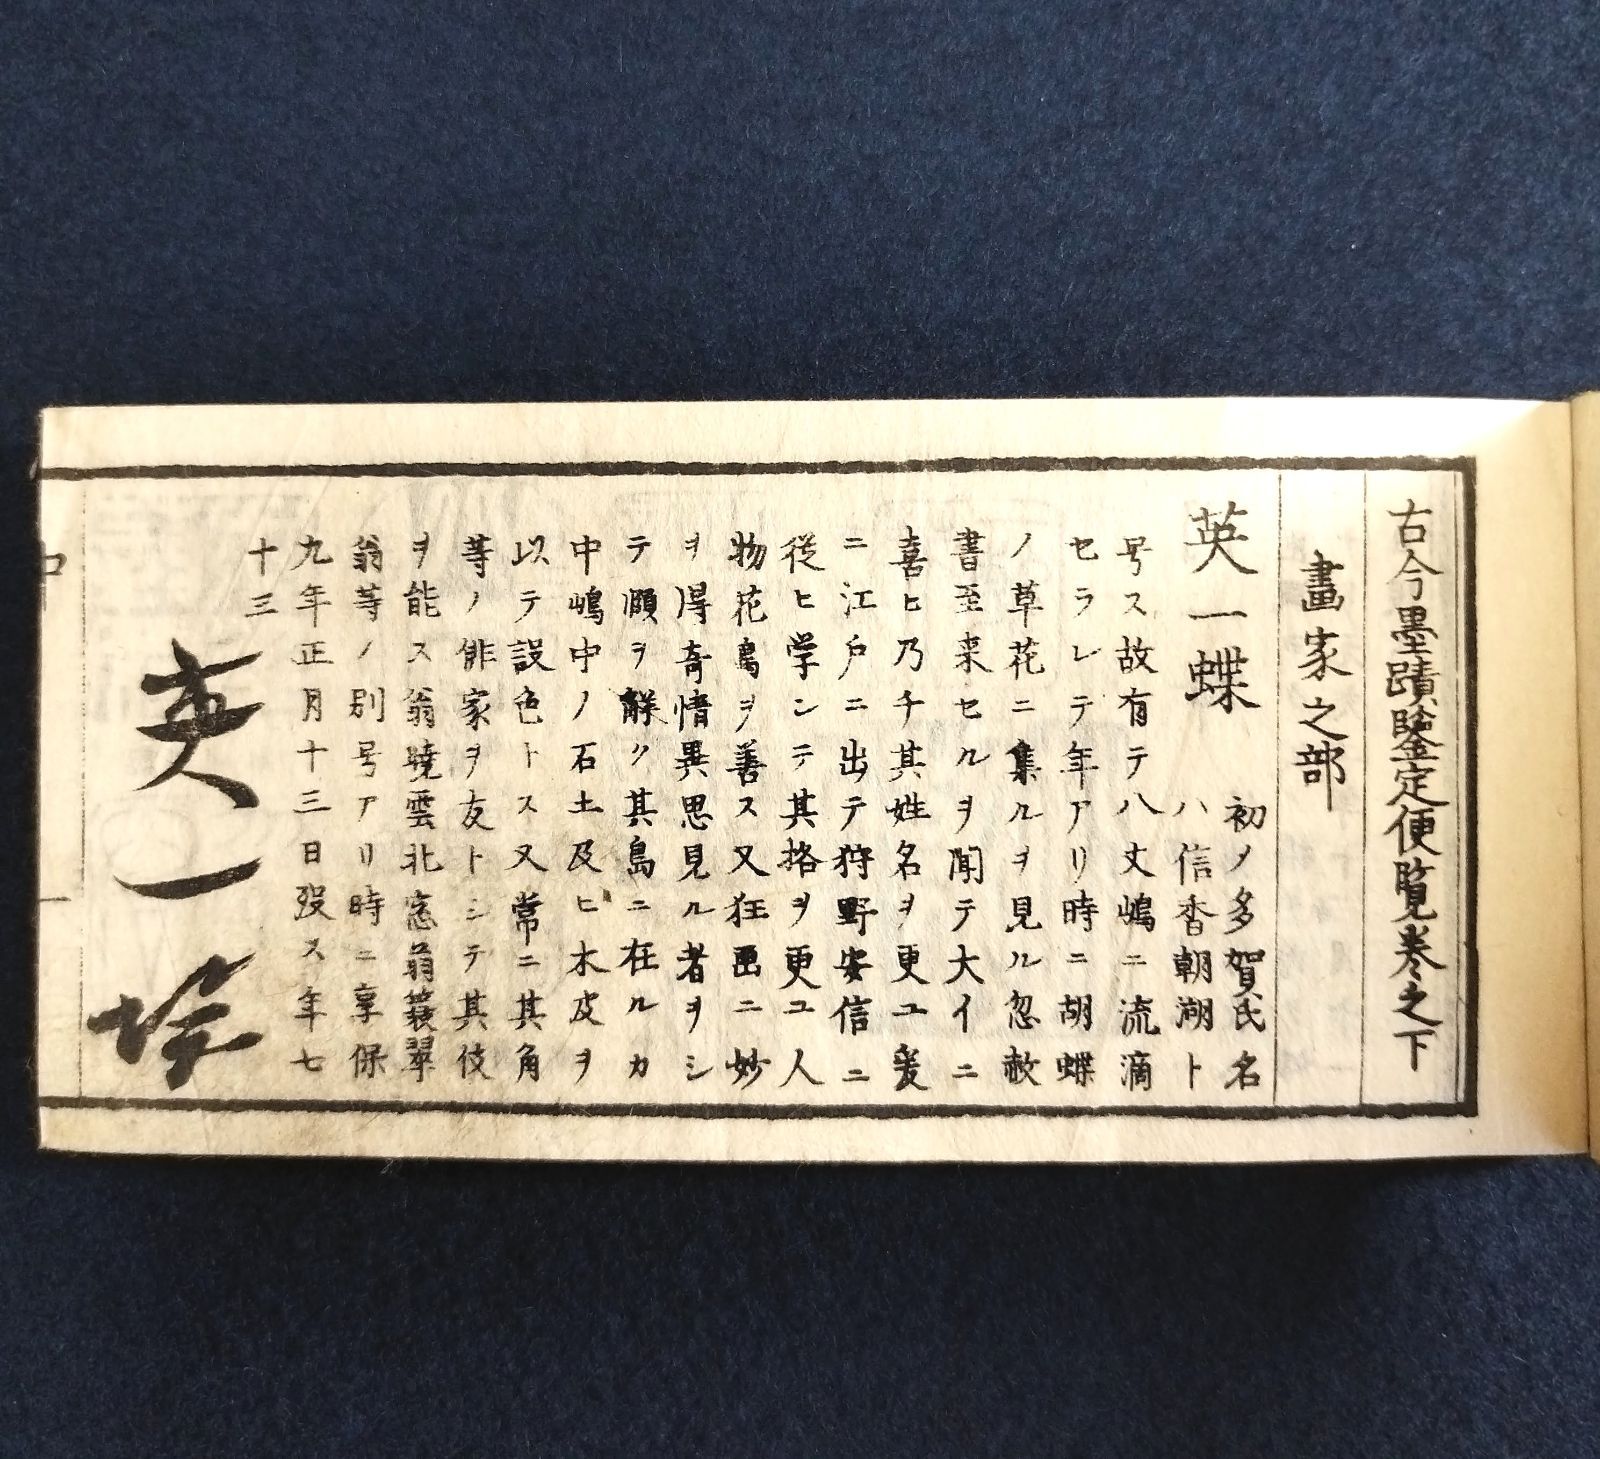 古今墨蹟鑒定便覧巻之下
畫家之部
英一蝶
初ノ多賀氏名
ハ信香朝湖ト
号ス故有テ八丈嶋ニ流滴
セラレテ年アリ時ニ胡蝶
ノ草花ニ集ルヲ見ル忽赦
書至来セルヲ聞テ大イニ
喜ヒ乃チ其姓名ヲ更ユ爰
ニ江戸ニ出テ狩野安信ニ
従ヒ学ンテ其格ヲ更ユ人
物花鳥ヲ善ス又狂畫ニ妙
ヲ得奇情異思見ル者ヲシ
テ頤ヲ觧ク其島ニ在ルカ
中嶋中ノ石土及ヒ木皮ヲ
以テ設色トス又常ニ其角
等ノ俳家ヲ友トシテ其伎
ヲ能ス翁暁雲北窓翁簑翠
翁等ノ別号アリ時ニ享保
九年正月十三日歿ス年七
十三
英一蝶